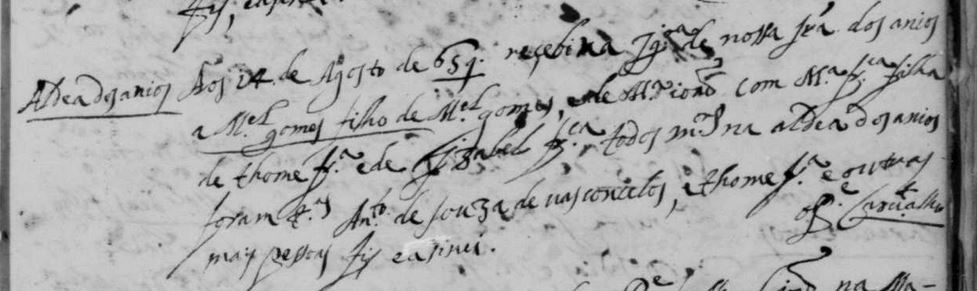 fiz, e asinei
Aldea dos anios Aos 24 de Agosto de 659. recebi na Igra de nossa sra dos anios
a Mel gomes filho de Mel gomes, e de Ma com Ma fca filha
de thome fz e de Izabel fca, todos mres na aldea dos anios
foram tas Anto de souza de vasconcelos, e thome fz e outras
mais pessoas fiz e asinei. o Pe Carvalho
na Ma-